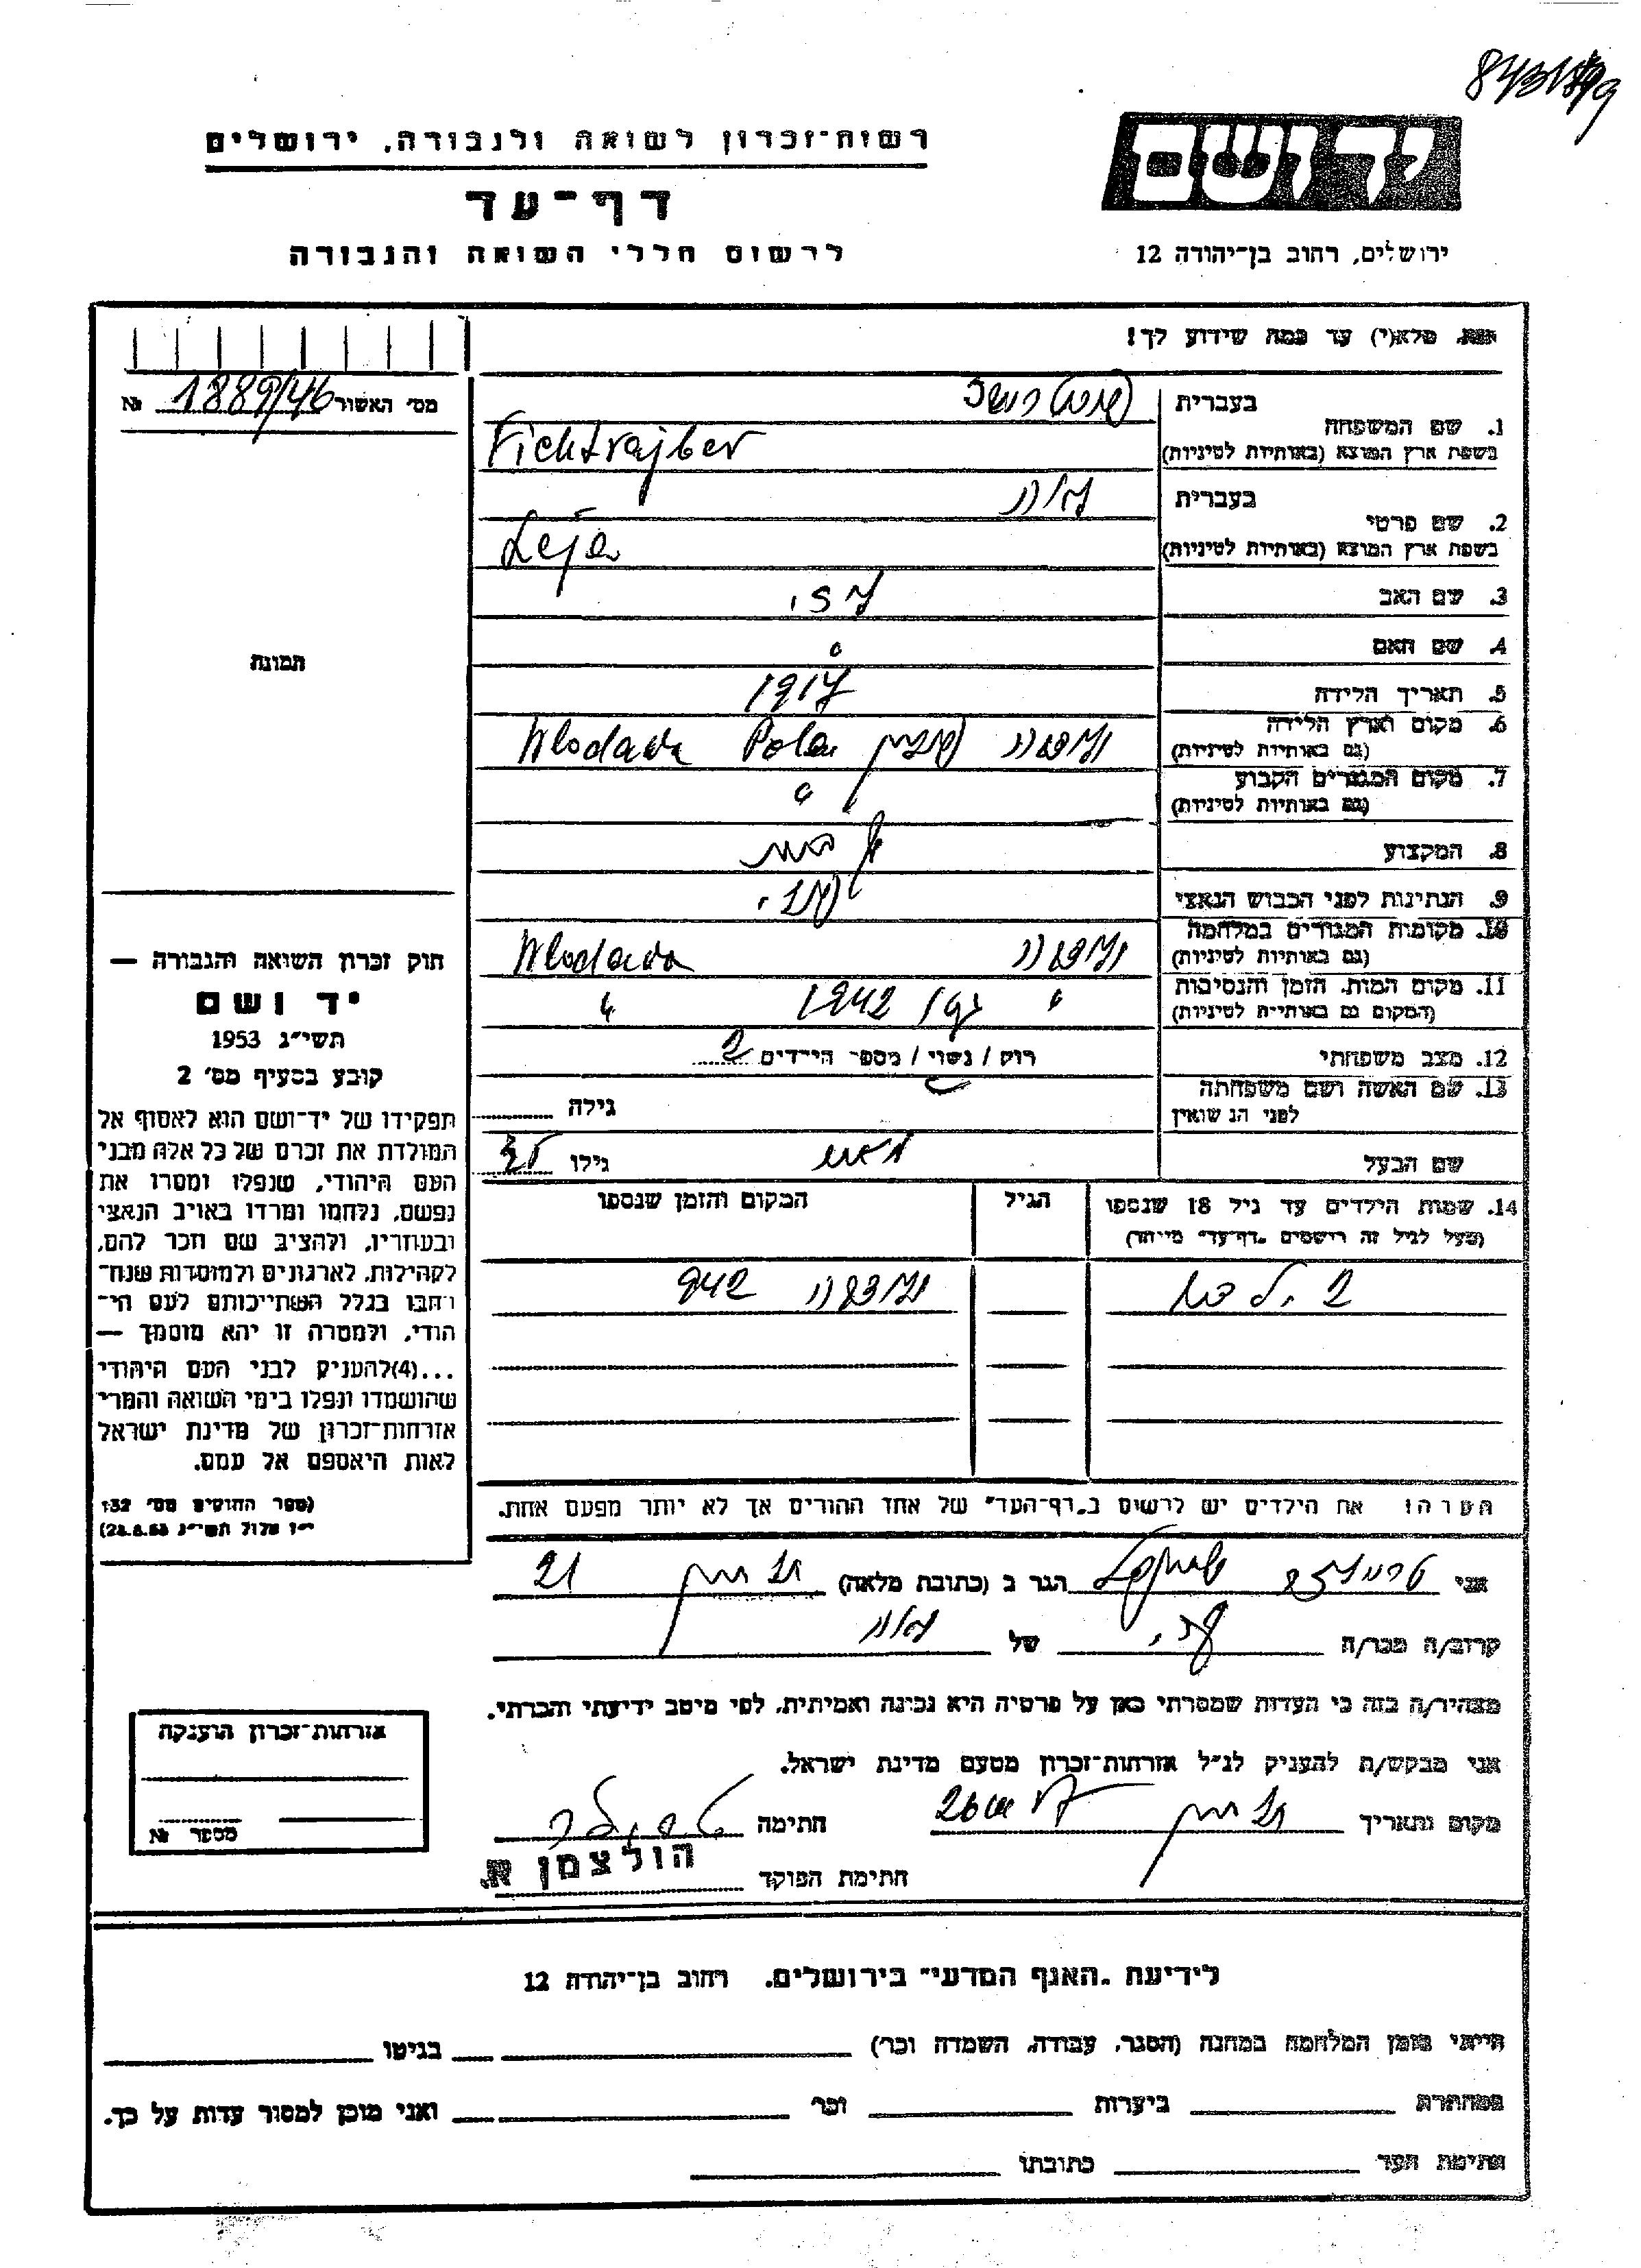 רשות־זכרון לשואה ולגבורה, ירושלים
דף־עד
לרשום חללי השואה והגבורה
יד ושם
ירושלים, רחוב בן־יהודה 12
מלא(י) עד כמה שידוע לך!
מס׳ האשור 1889/46 №
תמונה
1. שם המשפחה
בעברית
בשפת ארץ המוצא (באותיות לטיניות) Fichtrajber
2. שם פרטי
בעברית לאה
בשפת ארץ המוצא (באותיות לטיניות) Leja
3. שם האב
4. שם האם
5. תאריך הלידה 1917
6. מקום וארץ הלידה ולאדאווה פולין Wlodawa
(גם באותיות לטיניות)
7. מקום המגורים הקבוע "
(גם באותיות לטיניות)
8. המקצוע
9. הנתינות לפני הכבוש הנאצי
10. מקומות המגורים במלחמה Wlodawa
(גם באותיות לטיניות)
11. מקום המות, הזמן והנסיבות " 1942 "
(המקום גם באותיות לטיניות)
12. מצב משפחתי רוק / נשוי / מספר הילדים 2
13. שם האשה ושם משפחתה לפני הנשואין גילה
שם הבעל גילו
14. שמות הילדים עד גיל 18 שנספו הגיל המקום והזמן שנספו
(מעל לגיל זה רושמים „דף־עד״ מיוחד)
2 ילדים 942
חוק זכרון השואה והגבורה —
יד ושם
תשי״ג 1953
קובע בסעיף מס׳ 2
תפקידו של יד־ושם הוא לאסוף אל
המולדת את זכרם של כל אלה מבני
העם היהודי, שנפלו ומסרו את
נפשם, נלחמו ומרדו באויב הנאצי
ובעוזריו, ולהציב שם וזכר להם,
לקהילות, לארגונים ולמוסדות שנח־
רבו בגלל השתייכותם לעם הי־
הודי, ולמטרה זו יהא מוסמך —
...(4)להעניק לבני העם היהודי
שהושמדו ונפלו בימי השואה והמרי
אזרחות־זכרון של מדינת ישראל
לאות היאספם אל עמם.
(ספר החוקים מס׳ 132
י״ז אלול תשי״ג 28.8.53)
הערה: את הילדים יש לרשום ב„דף־העד״ של אחד ההורים אך לא יותר מפעם אחת.
אני הגר ב (כתובת מלאה) 21
קרוב/ה מכר/ה של לאה
מצהיר/ה בזה כי העדות שמסרתי כאן על פרטיה היא נכונה ואמיתית, לפי מיטב ידיעתי והכרתי.
אני מבקש/ת להעניק לנ״ל אזרחות־זכרון מטעם מדינת ישראל.
מקום ותאריך חתימה
חתימת הפוקד הולצמן א.
אזרחות־זכרון הוענקה
מספר №
לידיעת „האגף המדעי״ בירושלים, רחוב בן־יהודה 12
הייתי בזמן המלחמה במחנה (הסגר, עבודה, השמדה וכו׳) בגיטו
במחתרת ביערות וכו׳ ואני מוכן למסור עדות על כך.
חתימת העד כתובתו